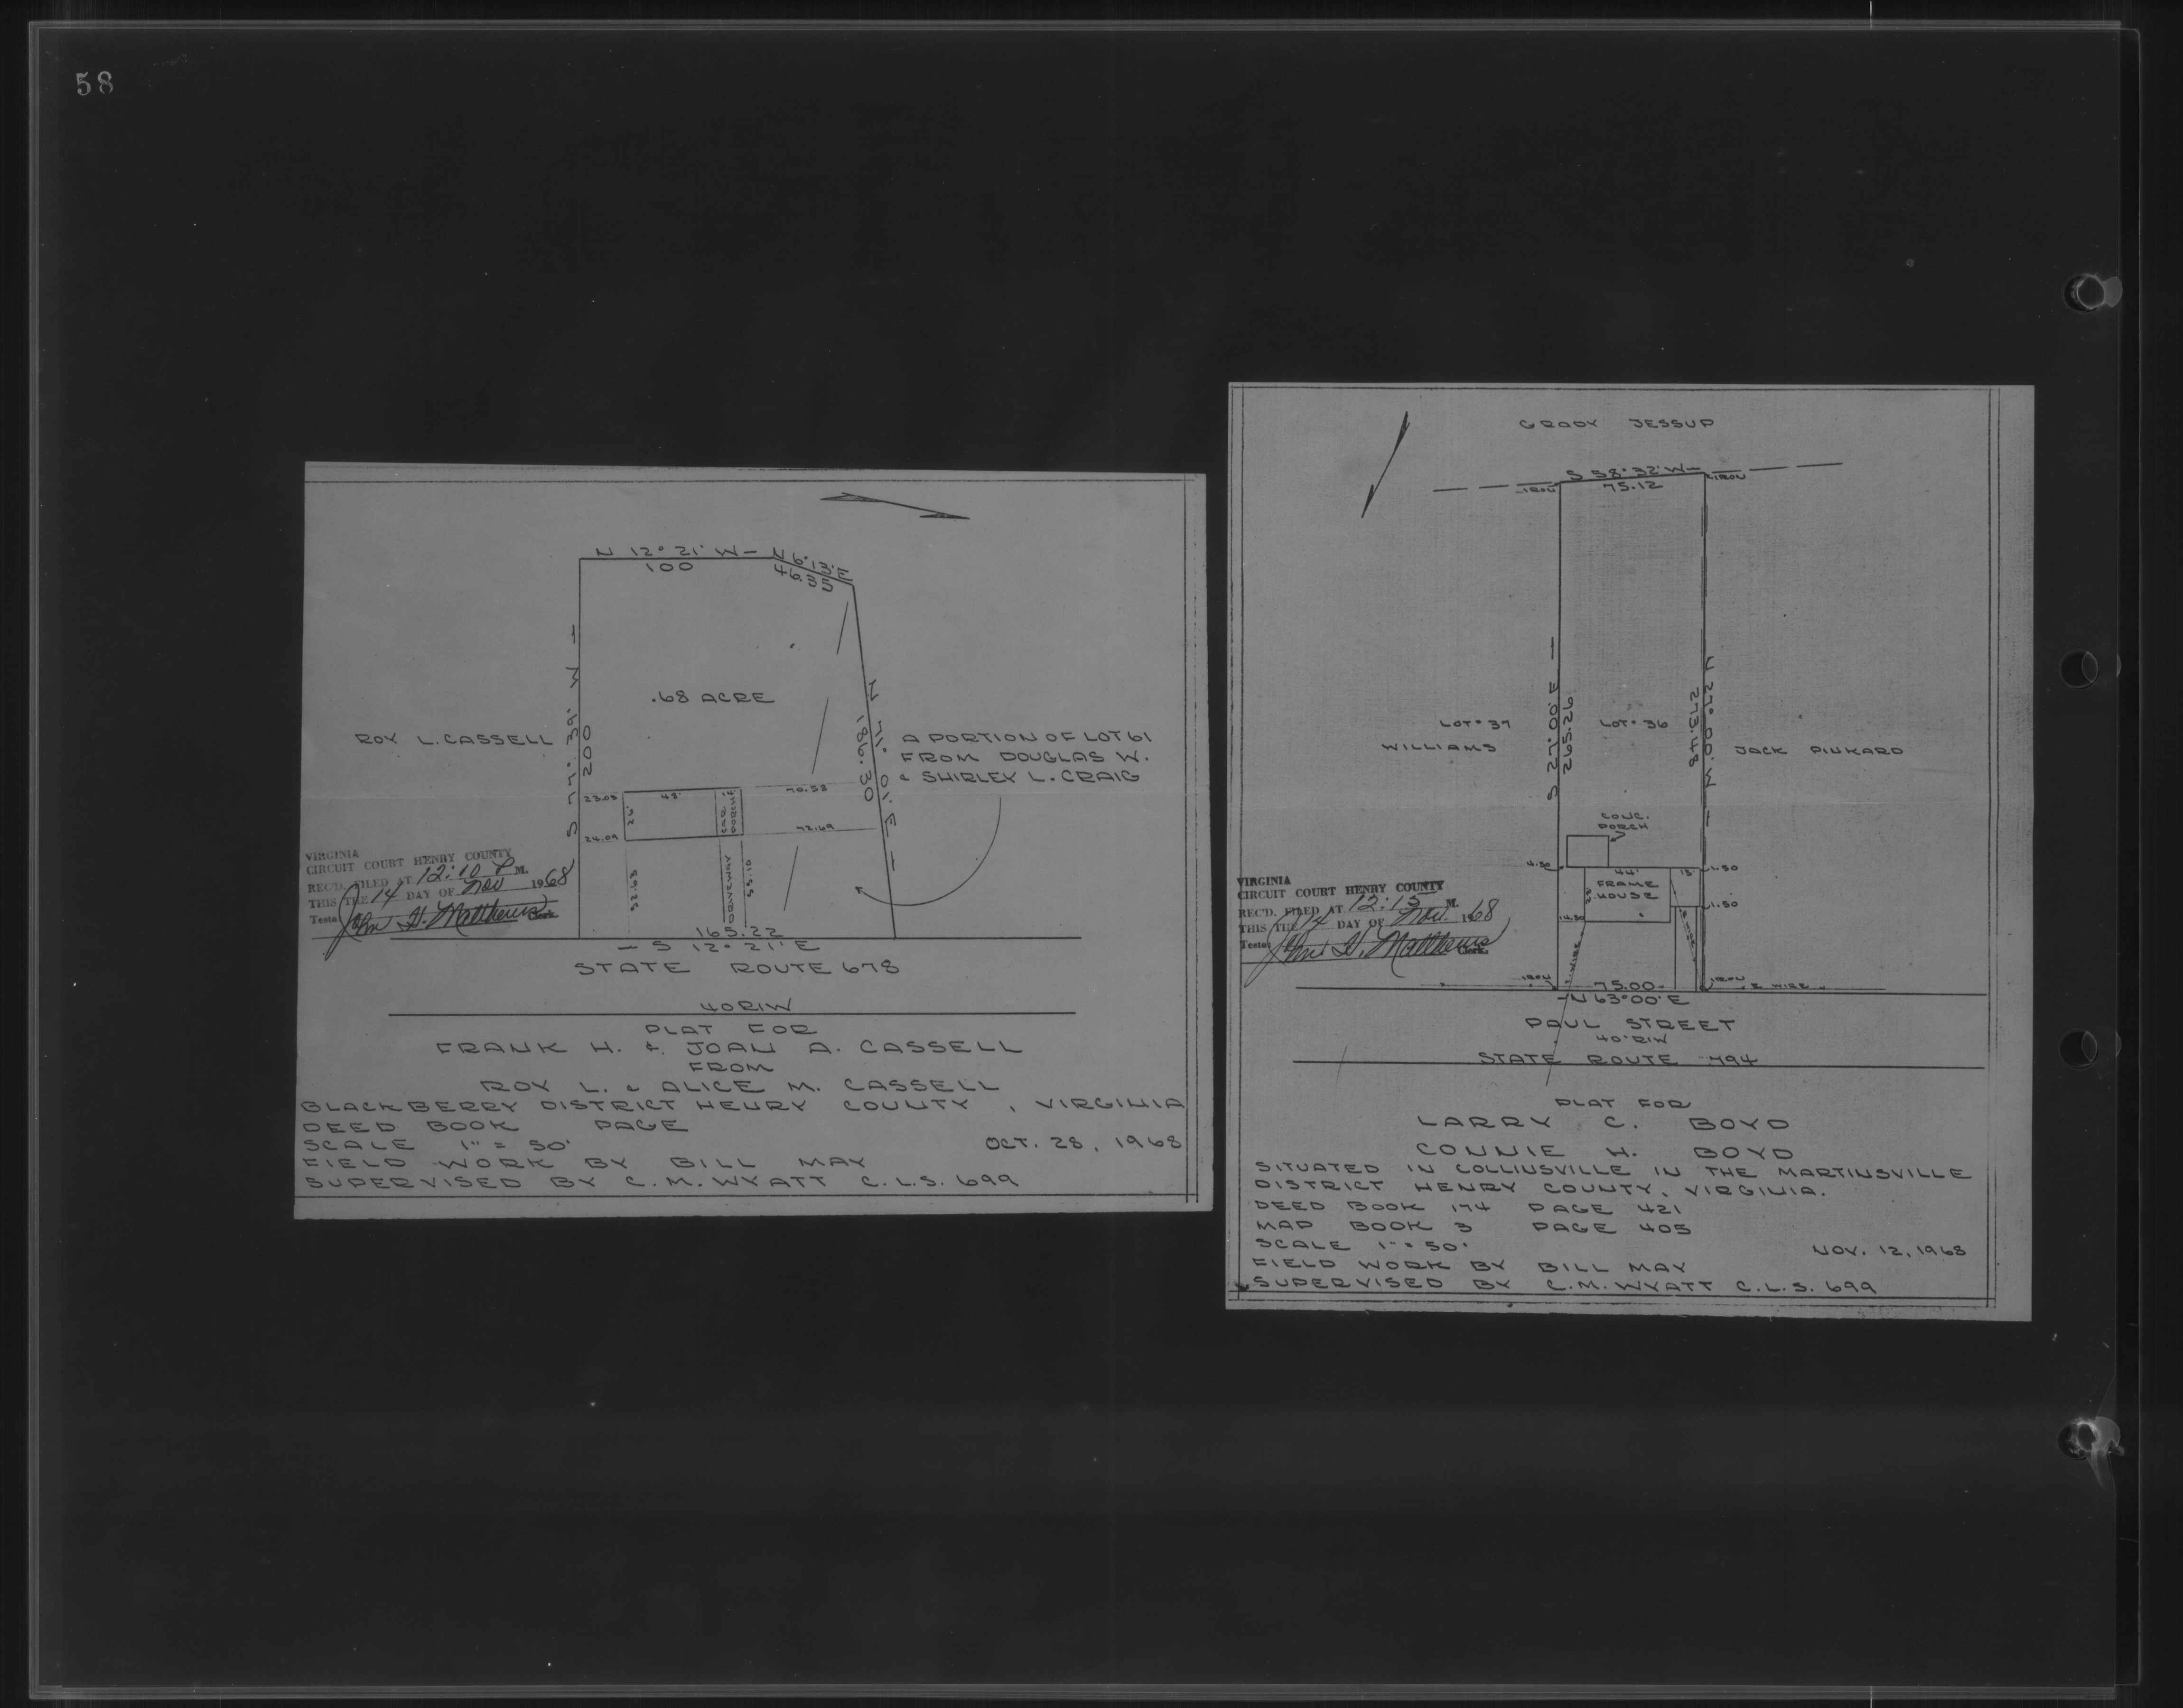 58
N 12° 21' W — N 6° 13' E
100 46.35
S 77° 39' W —
200
.68 ACRE
ROY L. CASSELL
N 71° 01' E —
186.30
A PORTION OF LOT 61
FROM DOUGLAS W.
& SHIRLEY L. CRAIG
23.05
48'
26'
CAR PORCHE
14'
70.58
24.09
72.69
52.63
DRIVEWAY
53.10
VIRGINIA
CIRCUIT COURT HENRY COUNTY
REC'D. FILED AT 12:10 P M.
THIS THE 14 DAY OF Nov 1968
Teste: John H. Matthews Clerk
165.22
— S 12° 21' E
STATE ROUTE 678
40 R/W
PLAT FOR
FRANK H. & JOAN A. CASSELL
FROM
ROY L. & ALICE M. CASSELL
BLACKBERRY DISTRICT HENRY COUNTY, VIRGINIA
DEED BOOK PAGE
SCALE 1" = 50' OCT. 28, 1968
FIELD WORK BY BILL MAY
SUPERVISED BY C.M. WYATT C.L.S. 699
GRADY JESSUP
S 58° 32' W —
IRON 75.12 IRON
S 27° 00' E —
265.26
N 27° 00' W —
273.48
LOT # 37
WILLIAMS
LOT # 36
JACK PINKARD
CONC.
PORCH
4.50
44'
15'
1.50
FRAME
HOUSE
14.50
1.50
VIRGINIA
CIRCUIT COURT HENRY COUNTY
REC'D. FILED AT 12:15 M.
THIS THE 14 DAY OF Nov. 1968
Teste: John H. Matthews Clerk
WIRE
IRON 75.00 IRON E WIRE
— N 63° 00' E
PAUL STREET
40' R/W
STATE ROUTE 794
PLAT FOR
LARRY C. BOYD
CONNIE H. BOYD
SITUATED IN COLLINSVILLE IN THE MARTINSVILLE
DISTRICT HENRY COUNTY, VIRGINIA.
DEED BOOK 174 PAGE 421
MAP BOOK 3 PAGE 405
SCALE 1" = 50' NOV. 12, 1968
FIELD WORK BY BILL MAY
SUPERVISED BY C.M. WYATT C.L.S. 699